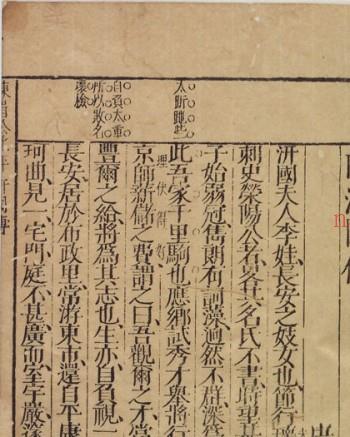 自負太重
所以敗名
壞檢
汧國夫人李娃長安之妓女也節行
刺史滎陽公者畧其名氏不書時望甚
子始弱冠雋朗有詞藻迥然不群深
此吾家千里駒也應鄉武秀才舉將行
京師薪儲之費謂之曰吾觀爾之才當
豐爾之給將為其志也生亦自負視
長安居於布政里嘗遊東市還自平康
珂曲見一宅門庭不甚廣而室宇嚴邃